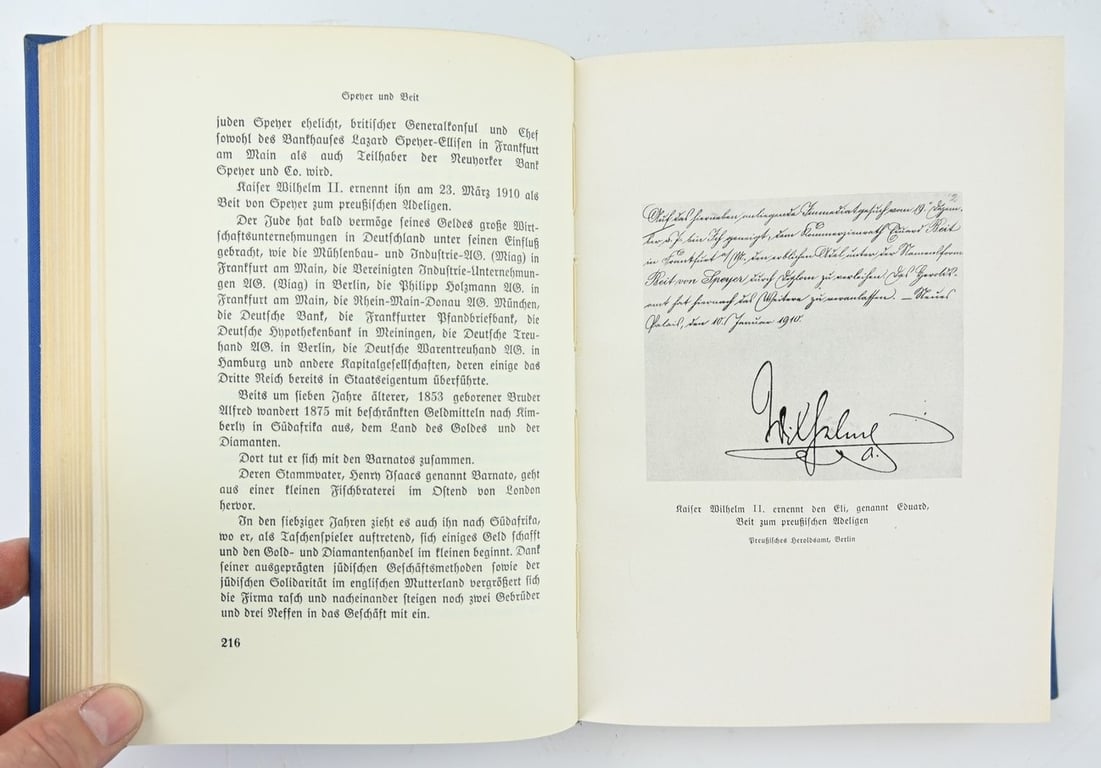 Speyer und Beit
juden Speyer ehelicht, britischer Generalkonsul und Chef
sowohl des Bankhauses Lazard Speyer-Ellisen in Frankfurt
am Main als auch Teilhaber der Neuyorker Bank
Speyer und Co. wird.
Kaiser Wilhelm II. ernennt ihn am 23. März 1910 als
Beit von Speyer zum preußischen Adeligen.
Der Jude hat bald vermöge seines Geldes große Wirt-
schaftsunternehmungen in Deutschland unter seinen Einfluß
gebracht, wie die Mühlenbau- und Industrie-AG. (Miag) in
Frankfurt am Main, die Vereinigten Industrie-Unternehmun-
gen AG. (Viag) in Berlin, die Philipp Holzmann AG. in
Frankfurt am Main, die Rhein-Main-Donau AG. München,
die Deutsche Bank, die Frankfurter Pfandbriefbank, die
Deutsche Hypothekenbank in Meiningen, die Deutsche Treu-
hand AG. in Berlin, die Deutsche Warentreuhand AG. in
Hamburg und andere Kapitalgesellschaften, deren einige das
Dritte Reich bereits in Staatseigentum überführte.
Beits um sieben Jahre älterer, 1853 geborener Bruder
Alfred wandert 1875 mit beschränkten Geldmitteln nach Kim-
berly in Südafrika aus, dem Land des Goldes und der
Diamanten.
Dort tut er sich mit den Barnatos zusammen.
Deren Stammvater, Henry Isaacs genannt Barnato, geht
aus einer kleinen Fischbraterei im Ostend von London
hervor.
In den siebziger Jahren zieht es auch ihn nach Südafrika,
wo er, als Taschenspieler auftretend, sich einiges Geld schafft
und den Gold- und Diamantenhandel im kleinen beginnt. Dank
seiner ausgeprägten jüdischen Geschäftsmethoden sowie der
jüdischen Solidarität im englischen Mutterland vergrößert sich
die Firma rasch und nacheinander steigen noch zwei Gebrüder
und drei Neffen in das Geschäft mit ein.
216
Auf das hierneben anliegende Immediatgesuch vom 19. Dezem-
ber v. J. bin Ich geneigt, dem Kommerzienrath Eduard Beit
in Frankfurt a/M. den erblichen Adel unter der Namensform
Beit von Speyer durch Diplom zu verleihen. Das Herolds-
amt hat hiernach das Weitere zu veranlassen. – Neues
Palais, den 10. Januar 1910.
Wilhelm
Kaiser Wilhelm II. ernennt den Eli, genannt Eduard,
Beit zum preußischen Adeligen
Preußisches Heroldsamt, Berlin